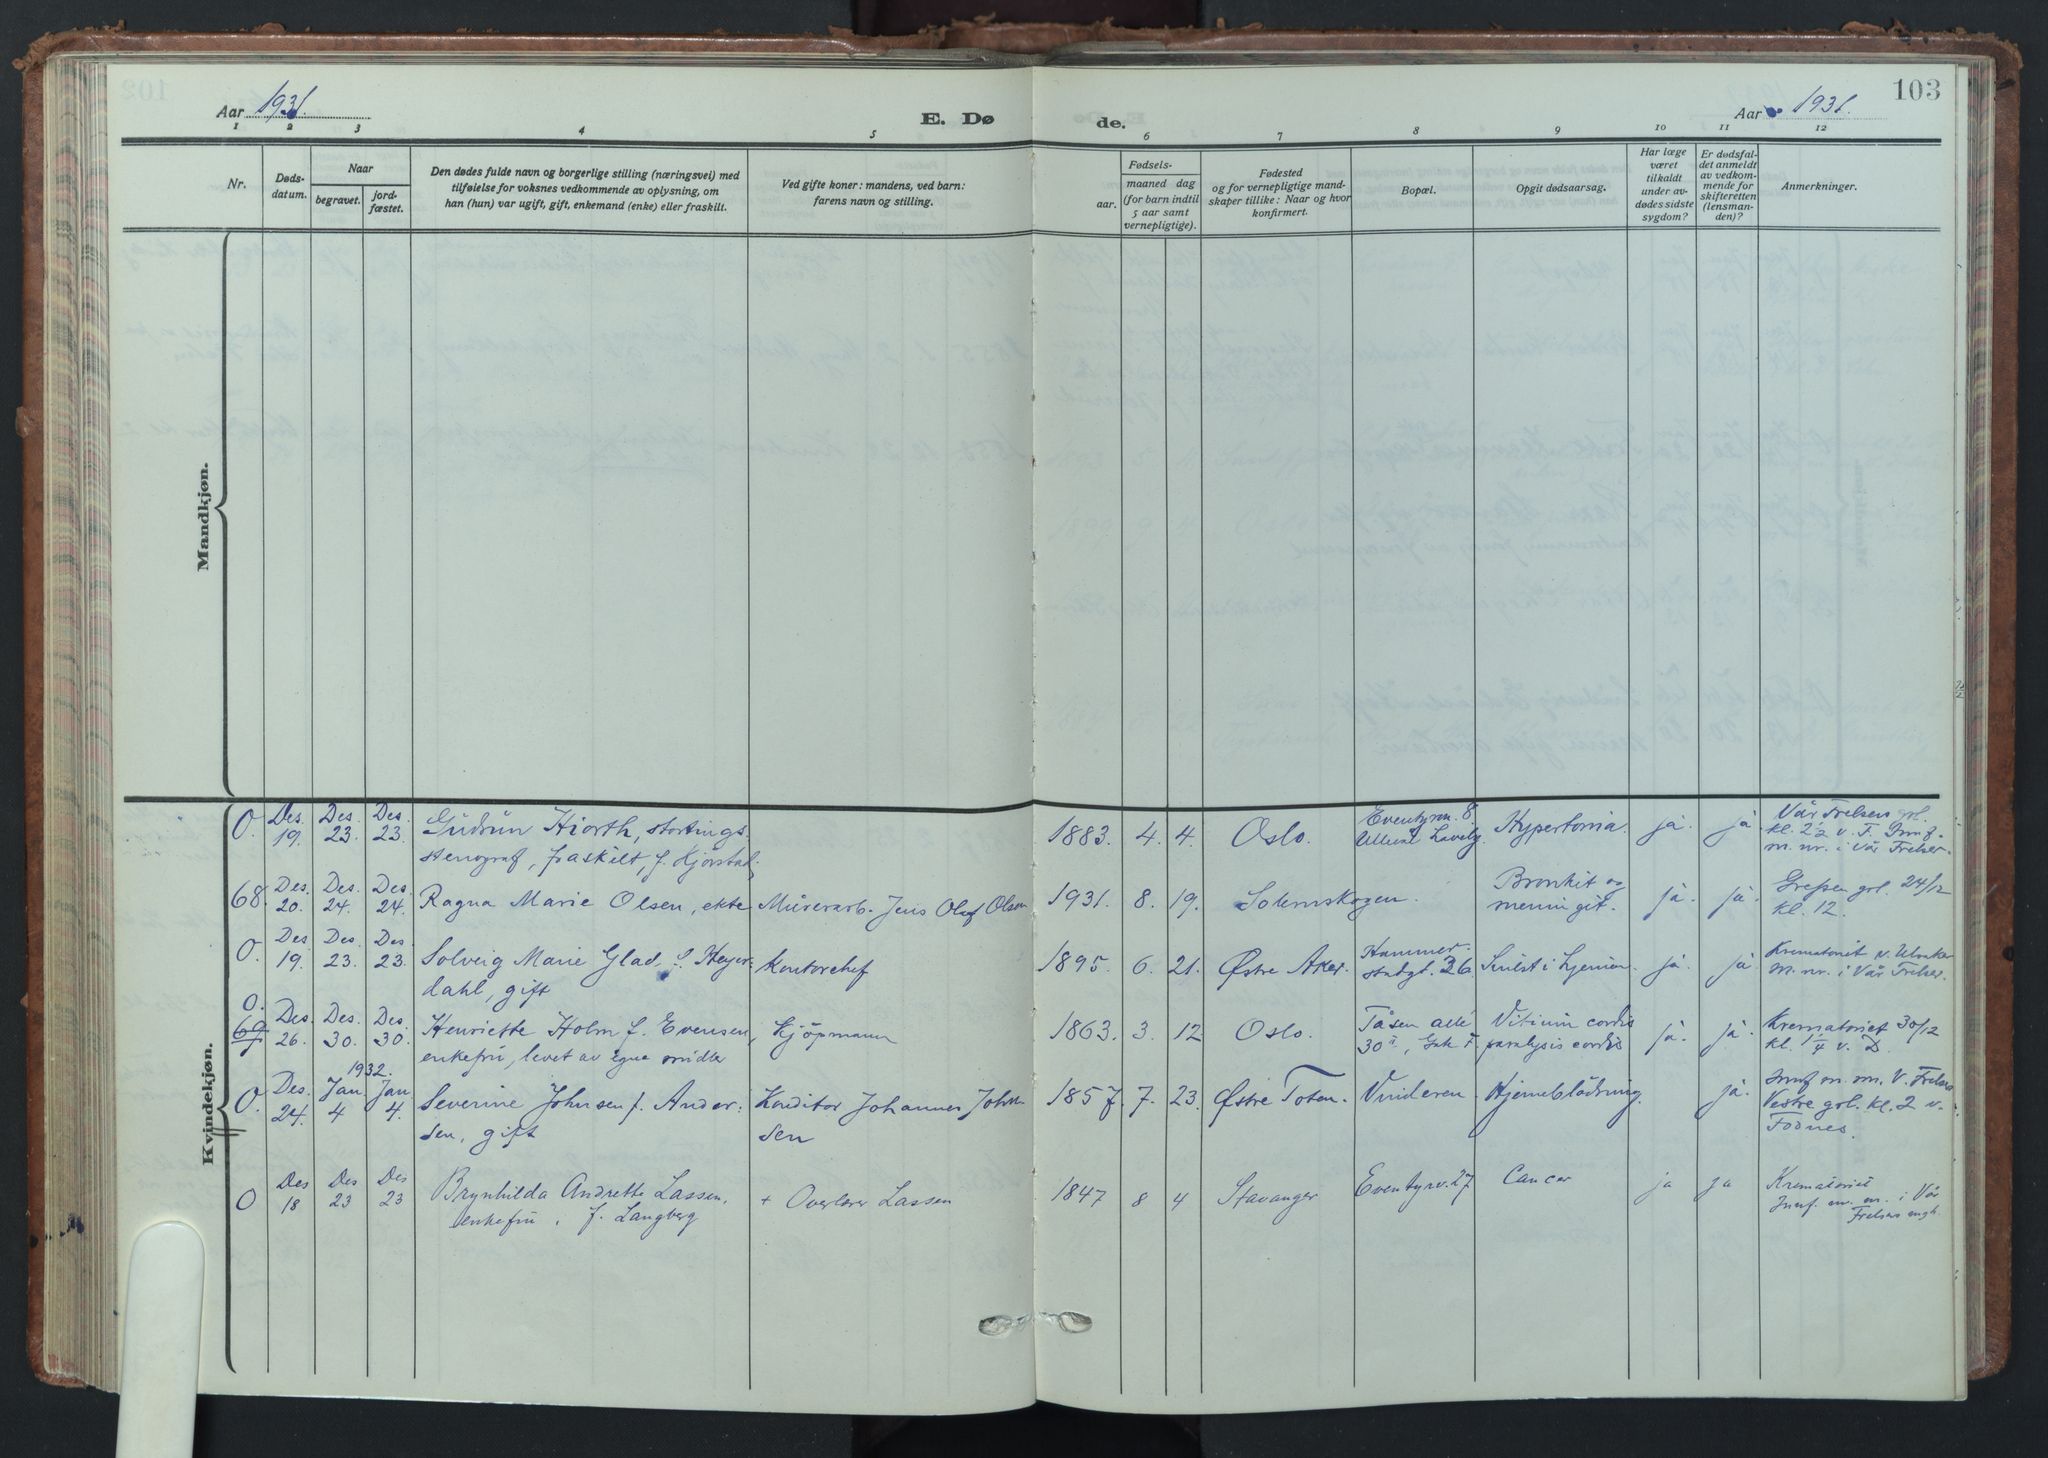 Aar 1931.
E. Dø
de.
Aar 1931.
103
1 2 3 4 5 6 7 8 9 10 11 12
Nr.
Døds-
datum.
Naar
begravet.
jord-
fæstet.
Den dødes fulde navn og borgerlige stilling (næringsvei) med
tilføielse for voksnes vedkommende av oplysning, om
han (hun) var ugift, gift, enkemand (enke) eller fraskilt.
Ved gifte koner: mandens, ved barn:
farens navn og stilling.
Fødsels-
aar.
maaned dag
(for barn indtil
5 aar samt
vernepligtige).
Fødested
og for vernepligtige mand-
skaper tillike: Naar og hvor
konfirmert.
Bopæl.
Opgit dødsaarsag.
Har læge
været
tilkaldt
under av-
dødes sidste
sygdom?
Er dødsfal-
det anmeldt
av vedkom-
mende for
skifteretten
(lensman-
den)?
Anmerkninger.
Mandkjøn.
Kvindekjøn.
O. Des. 19. Des. 23. Des. 23. Gudrun Hiorth, stortings-
stenograf, fraskilt, f. Kjørstad,
1883. 4. 4. Oslo. Eventyrv. 8. Ullevål Haveby Hypertonia. ja. ja
Vår Frelsers grl.
kl. 2 1/2 v. F. Innf.
m. nr. i Vår Frelser.
68. Des. 20. Des. 24. Des. 24. Ragna Marie Olsen, ekte Murerarb. Jens Olaf Olsen
1931. 8. 19. Solemskogen. Bronkit og
meningit. ja. ja.
Grefsen grl. 24/12
kl. 12.
O. Des. 19. Des. 23. Des. 23. Solveig Marie Glad f. Heyer-
dahl, gift Kontorchef
1895. 6. 21. Østre Aker. Hammer-
stadgt. 26 Svulst i hjernen. ja. ja.
Krematoriet v.
m. nr. i Vår Frelser.
O.
69 Des. 26. Des. 30. Des. 30. Henriette Holm f. Evensen,
enkefru, levet av egne midler Kjøpmann
1863. 3. 12 Oslo. Tåsen allé
30 II, Vitium cordis
paralysis cordis ja. ja.
Krematoriet 30/12
kl. 1 1/4 v. D.
1932.
O. Des. 24. Jan 4 Jan 4. Severine Johnsen f. Ander-
sen, gift Konditor Johannes John-
sen
1857. 7. 23. Østre Toten. Vinderen. Hjerneblødning. ja.
Innf. m. nr. V. Frelsers
Vestre grl. kl. 2 v.
Fodnes.
O Des 18 Des 23 Des 23 Brynhilda Andrette Lassen,
enkefru, f. Langberg + Overlærer Lassen
1847 8 4 Stavanger Eventyrv. 27 Cancer ja ja
Krematoriet
Innf. m. nr. i Vår
Frelsers mgh.